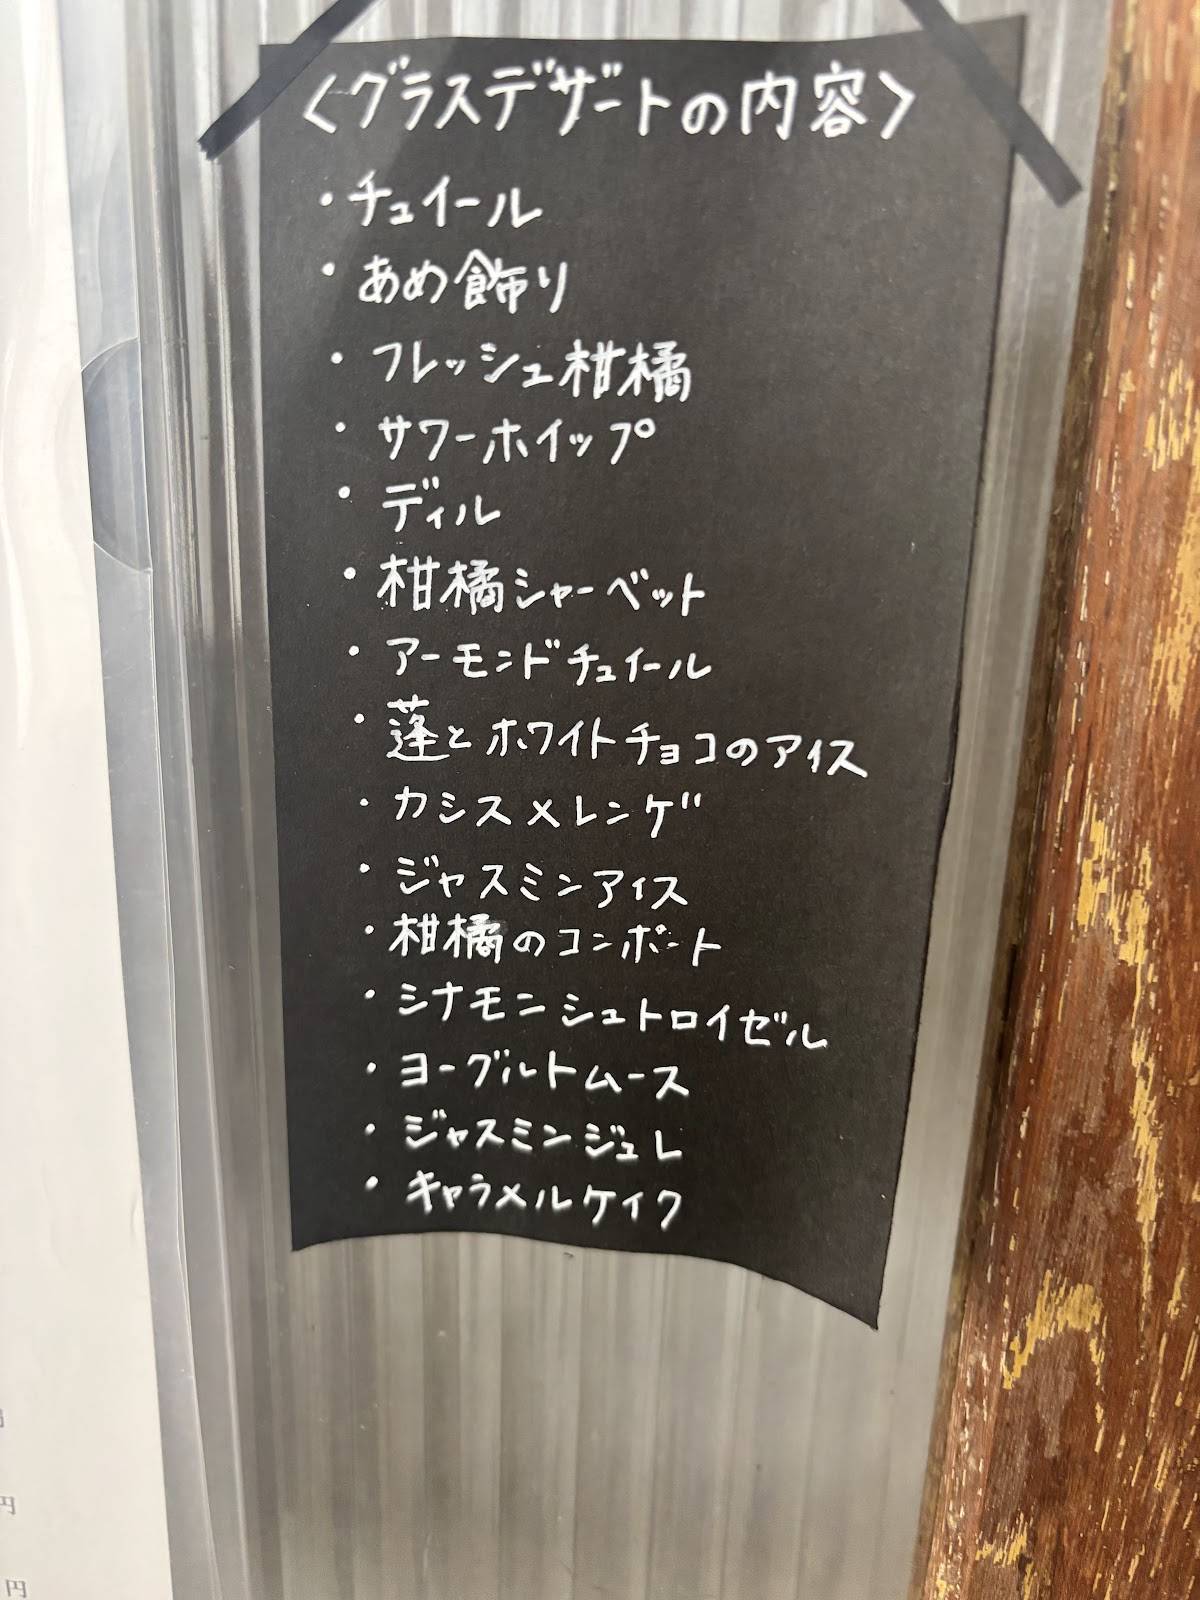 〈グラスデザートの内容〉
・チュイール
・あめ飾り
・フレッシュ柑橘
・サワーホイップ
・ディル
・柑橘シャーベット
・アーモンドチュイール
・蓬とホワイトチョコのアイス
・カシスメレンゲ
・ジャスミンアイス
・柑橘のコンポート
・シナモンシュトロイゼル
・ヨーグルトムース
・ジャスミンジュレ
・キャラメルケイク
円
円